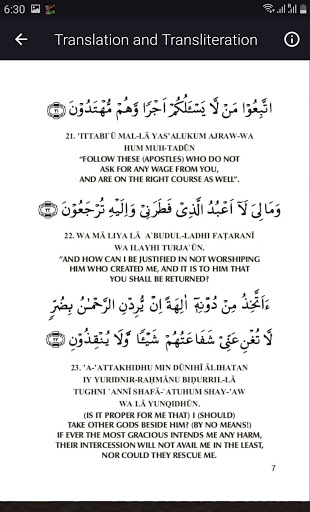 6:30
Translation and Transliteration
اتَّبِعُوْا مَنْ لَّا يَسْـَٔلُكُمْ اَجْرًا وَّهُمْ مُّهْتَدُوْنَ ﴿٢١﴾
21. 'ITTABI`Ū MAL-LĀ YAS'ALUKUM AJRAW-WA
HUM MUH-TADŪN
"FOLLOW THESE (APOSTLES) WHO DO NOT
ASK FOR ANY WAGE FROM YOU,
AND ARE ON THE RIGHT COURSE AS WELL".
وَمَالِىَ لَآ اَعْبُدُ الَّذِىْ فَطَرَنِىْ وَاِلَيْهِ تُرْجَعُوْنَ ﴿٢٢﴾
22. WA MĀ LIYA LĀ A`BUDUL-LADHI FAṬARANĪ
WA ILAYHI TURJA`ŪN.
"AND HOW CAN I BE JUSTIFIED IN NOT WORSHIPING
HIM WHO CREATED ME, AND IT IS TO HIM THAT
YOU SHALL BE RETURNED?
ءَاَتَّخِذُ مِنْ دُوْنِهٖٓ اٰلِهَةً اِنْ يُّرِدْنِ الرَّحْمٰنُ بِضُرٍّ
لَّا تُغْنِ عَنِّىْ شَفَاعَتُهُمْ شَيْـًٔا وَّلَا يُنْقِذُوْنِ ﴿٢٣﴾
23. 'A-'ATTAKHIDHU MIN DŪNIHĪ ĀLIHATAN
IY YURIDNIR-RAḤMĀNU BIḌURRIL-LĀ
TUGHNI `ANNĪ SHAFĀ-`ATUHUM SHAY-'AW
WA LĀ YUNQIDHŪN.
(IS IT PROPER FOR ME THAT) I (SHOULD)
TAKE OTHER GODS BESIDE HIM? (BY NO MEANS!)
IF EVER THE MOST GRACIOUS INTENDS ME ANY HARM,
THEIR INTERCESSION WILL NOT AVAIL ME IN THE LEAST,
NOR COULD THEY RESCUE ME.
7